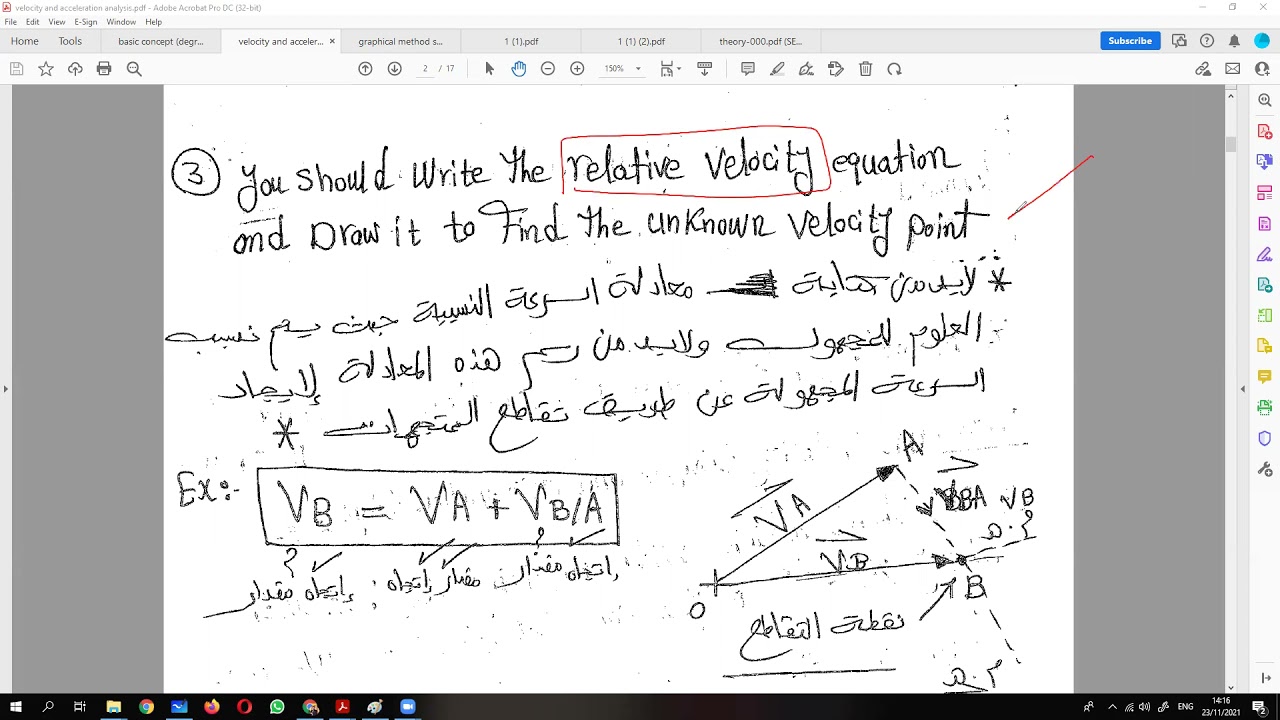 velocity and acceleration analysis.pdf - Adobe Acrobat Pro DC (32-bit)
File Edit View E-Sign Window Help
Home Tools basic concept (degr... velocity and acceler... × graphical method s... 1 (1).pdf 1 (1) (2).pdf theory-000.pdf (SE... Subscribe
2 / 17 150%
③ You should write the relative velocity equation
and Draw it to find the unknown velocity point
* لابد من كتابة معادلة السرعة النسبية حيث يتم نسب
المعلوم للمجهول ولابد من رسم هذه المعادلة لإيجاد
السرعة المجهولة عن طريق تقاطع المتجهات *
Ex:-
VB = VA + VB/A
? ?
إتجاه مقدار إتجاه مقدار مقدار إتجاه
A
VA
VBA VB
VB
O
B
نقطة التقاطع
ENG 14:16
23/11/2021
2